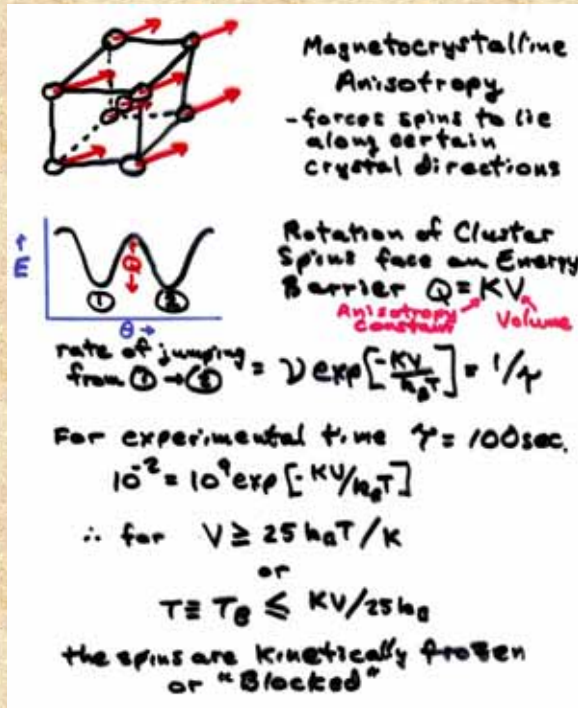 Magnetocrystalline
Anisotropy
- forces spins to lie
along certain
crystal directions
E →
Q
① ②
θ →
Rotation of Cluster
Spins face an Energy
Barrier Q = KV
Anisotropy Constant
Volume
rate of jumping
from ① → ② = ν exp[-KV/k_BT] = 1/τ
For experimental time τ = 100 sec.
10⁻² = 10⁹ exp[-KV/k_BT]
∴ for V ≥ 25 k_BT/K
or
T ≡ T_B ≤ KV/25k_B
the spins are kinetically frozen
or "Blocked"